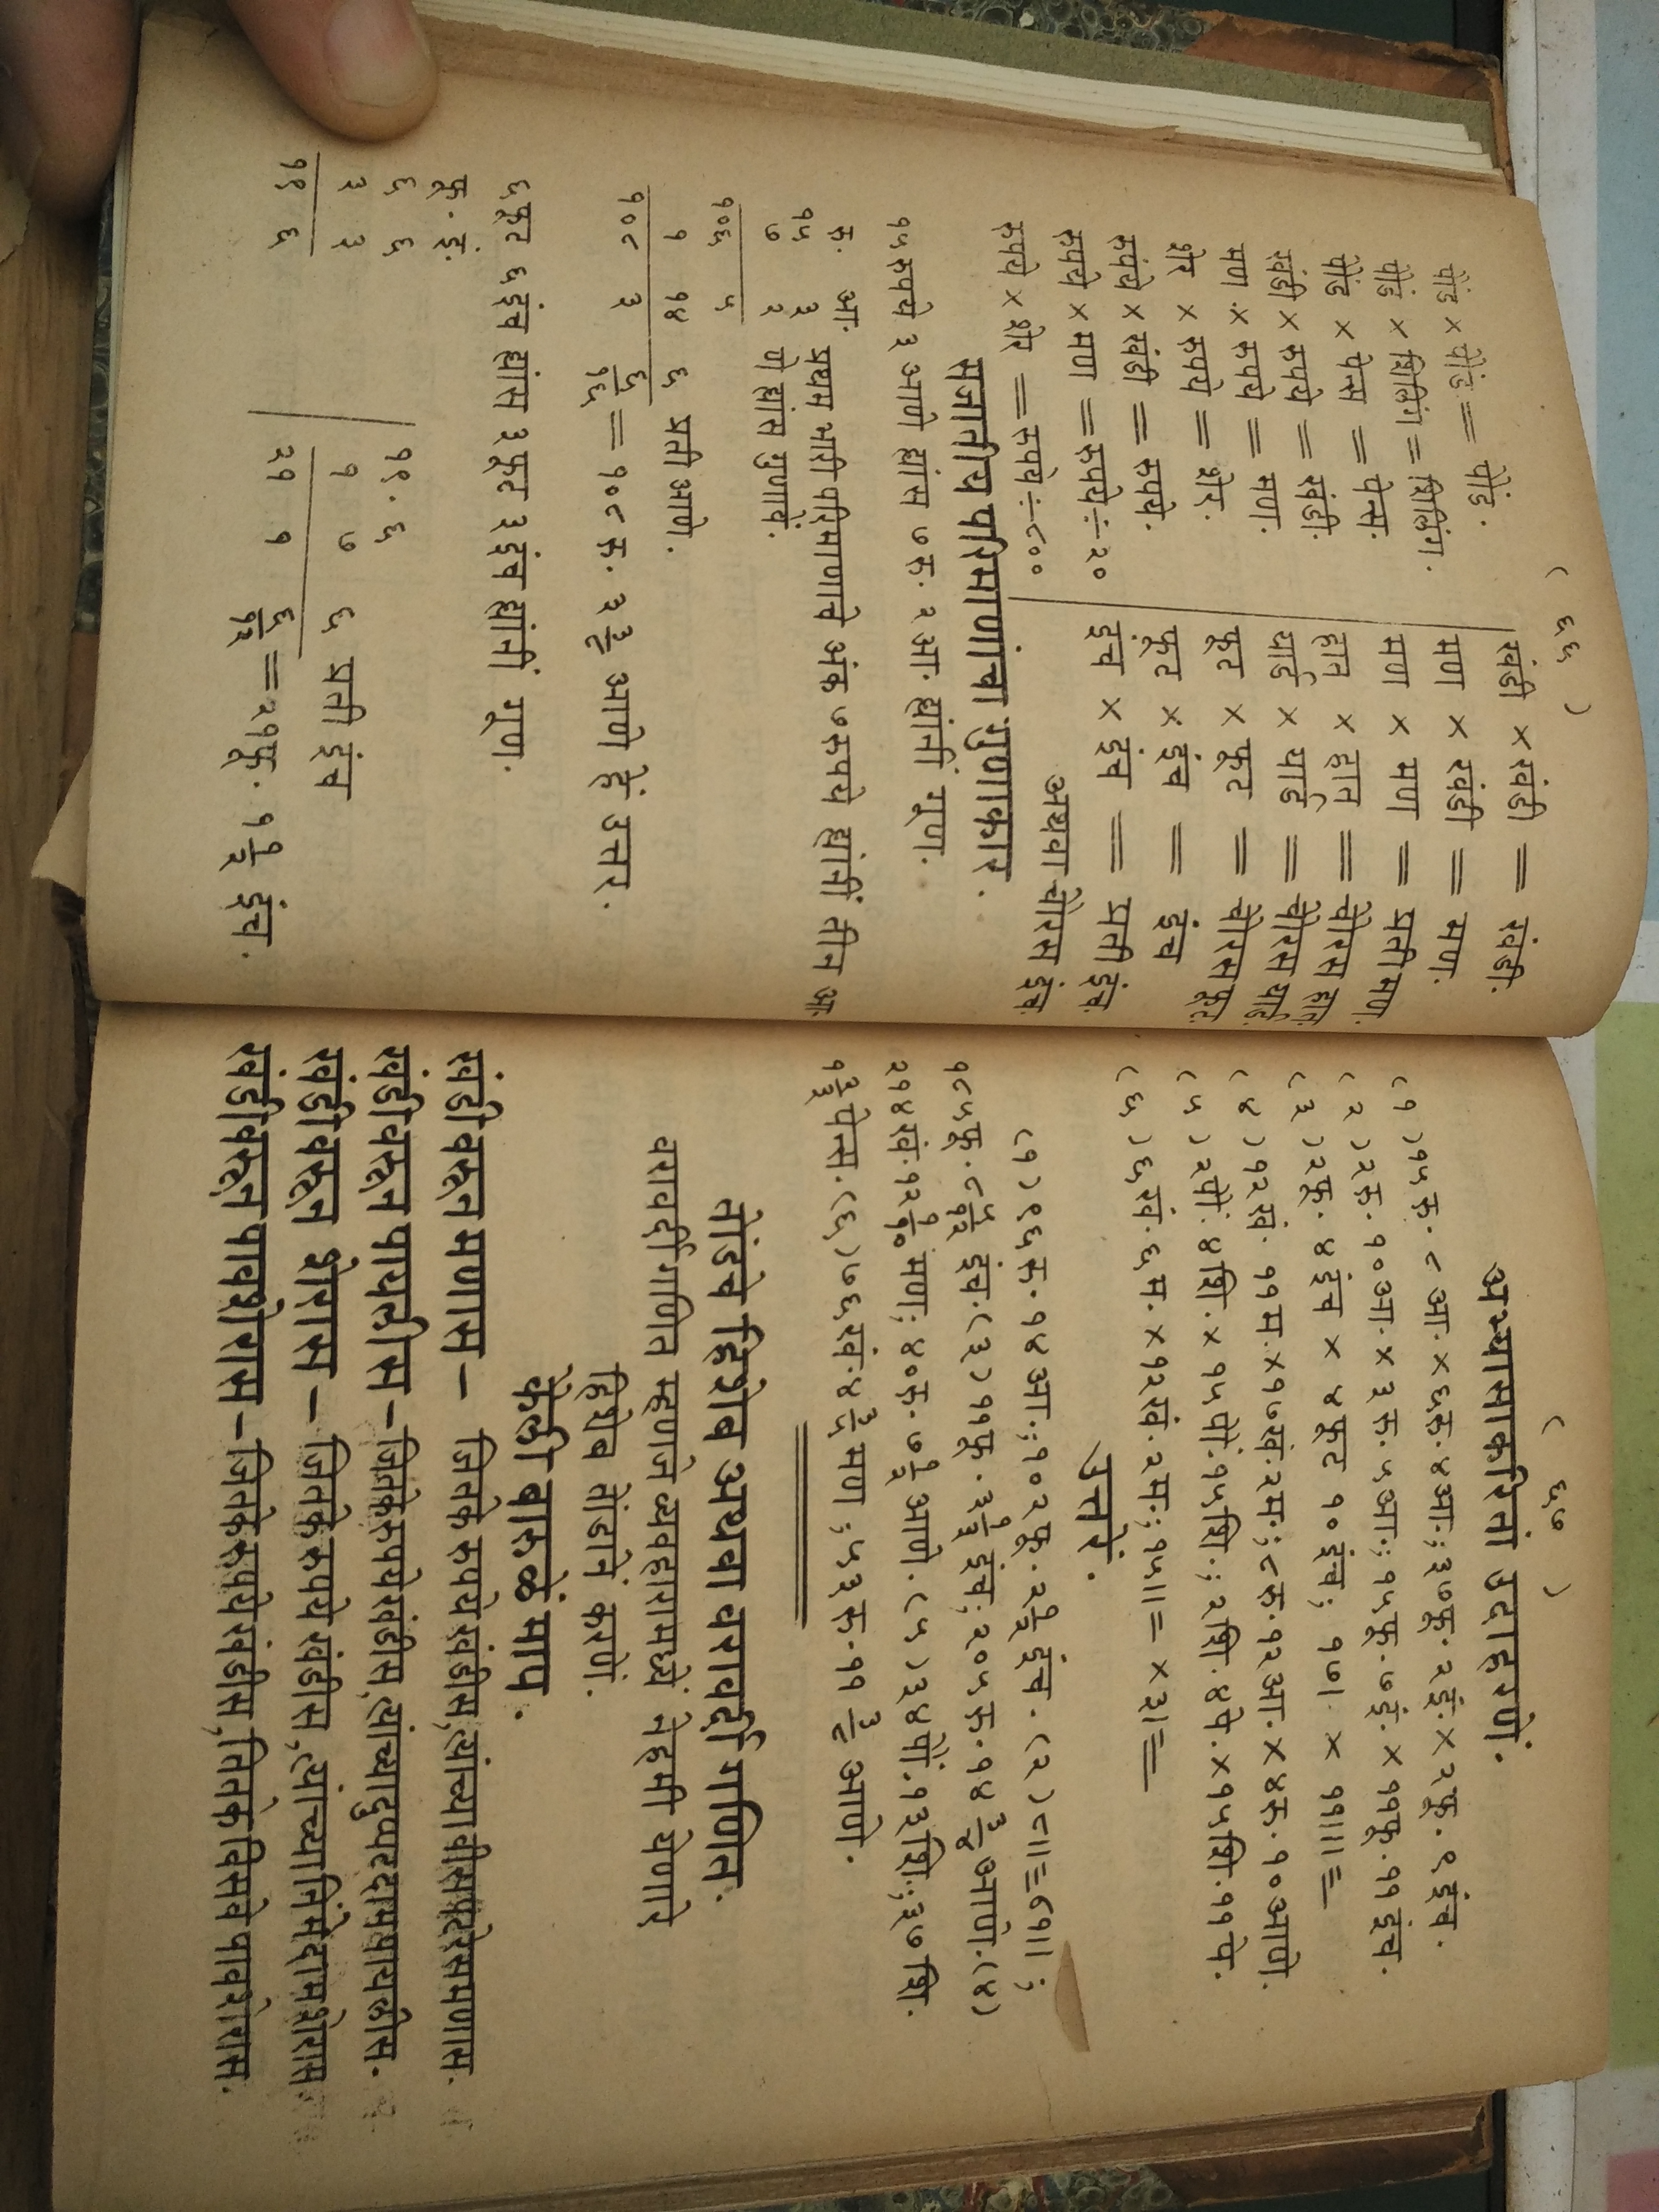 ( ६६ )
पौंड × पौंड = पौंड.
पौंड × शिलिंग = शिलिंग.
पौंड × पेन्स = पेन्स.
खंडी × रुपये = खंडी.
मण × रुपये = मण.
शेर × रुपये = शेर.
रुपये × खंडी = रुपये.
रुपये × मण = रुपये ÷ २०
रुपये × शेर = रुपये ÷ ८००
खंडी × खंडी = खंडी.
मण × खंडी = मण.
मण × मण = प्रतीमण.
हात × हात = चौरस हात.
यार्ड × यार्ड = चौरस यार्ड.
फूट × फूट = चौरस फूट.
फूट × इंच = इंच
इंच × इंच = प्रतीइंच.
अथवा चौरस इंच
सजातीय परिमाणांचा गुणाकार.
१५ रुपये ३ आणे ह्यांस ७ रु. २ आ. ह्यांनीं गूण.
रु. आ. प्रथम भारी परिमाणाचे अंक ७ रुपये ह्यांनीं तीन आ-
१५ ३ णे ह्यांस गुणावें.
७ २
१०६ ५
१ १४ ६ प्रती आणे.
१०८ ३ ६/१६ = १०८ रु. ३ ३/८ आणे हें उत्तर.
६ फूट ६ इंच ह्यांस ३ फूट ३ इंच ह्यांनीं गूण.
फू. इं.
६ ६
३ ३
१९ ६
१९. ६
१ ७ ६ प्रती इंच
२१ १ ६/१२ = २१ फू. १ १/२ इंच.
( ६७ )
अभ्यासाकरितां उदाहरणें.
( १ ) १५ रु. ८ आ. × ६ रु. ४ आ.; ३७ फू. २ इं. × २ फू. ९ इंच.
( २ ) २ रु. १० आ. × ३ रु. ५ आ.; १५ फू. ७ इं. × ११ फू. ११ इंच.
( ३ ) २ फू. ४ इंच × ४ फूट १० इंच; १७। × ११॥।=
( ४ ) १२ खं. ११ म. × १७ खं. २ म.; ८ रु. १२ आ. × ४ रु. १० आणे.
( ५ ) २ पौं. ४ शि. × १५ पौं. १५ शि.; २ शि. ४ पे. × १५ शि. ११ पे.
( ६ ) ६ खं. ६ म. × १२ खं. २ म.; १५॥= × ३।=
उत्तरें.
( १ ) ९६ रु. १४ आ.; १०२ फू. २ १/२ इंच. ( २ )
१८५ फू. ८ ५/१२ इंच. ( ३ ) ११ फू. ३ १/३ इंच; २०५ रु. १४ ३/४ आणे. ( ४ )
२१४ खं. १२ १/१० मण; ४० रु. ७ १/२ आणे. ( ५ ) ३४ पौं. १३ शि.; ३७ शि.
१ २/३ पेन्स. ( ६ ) ७६ खं. ४ ३/५ मण; ५३ रु. ११ ३/८ आणे.
तोंडचे हिशेब अथवा वरावर्दी गणित.
वरावर्दी गणित म्हणजे व्यवहारामध्यें नेहमी येणारे
हिशेब तोंडानें करणें.
कैली बारुळें माप.
खंडीवरून मणास – जितके रुपये खंडीस, त्यांच्या वीस पटेस मणास.
खंडीवरून पायलीस – जितके रुपये खंडीस, त्यांच्या दुप्पट दाम पायलीस.
खंडीवरून शेरास – जितके रुपये खंडीस, त्यांच्या निंमे दाम शेरास.
खंडीवरून पावशेरास – जितके रुपये खंडीस, तितके विसवे पावशेरास.